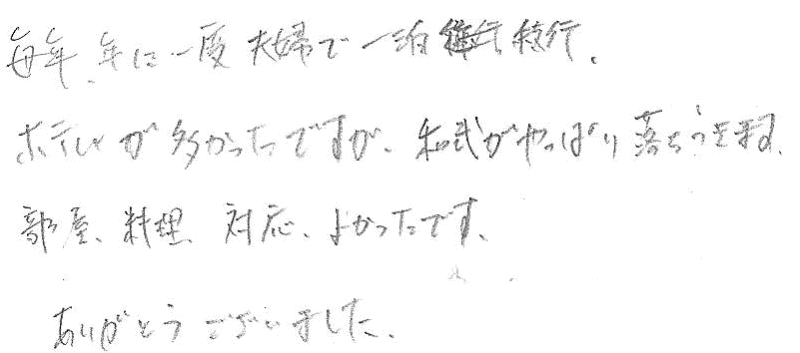 毎年、年に一度夫婦で一泊旅行。
ホテルが多かったですが、和式がやっぱり落ちつきますね。
部屋、料理、対応、よかったです。
ありがとうございました。